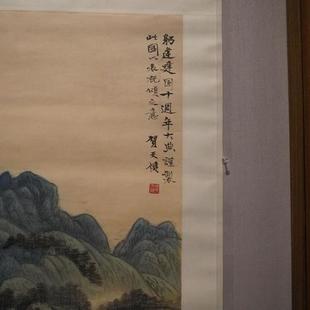 躬逢建国十週年大典謹製
此圖以表祝頌之意
賀天健